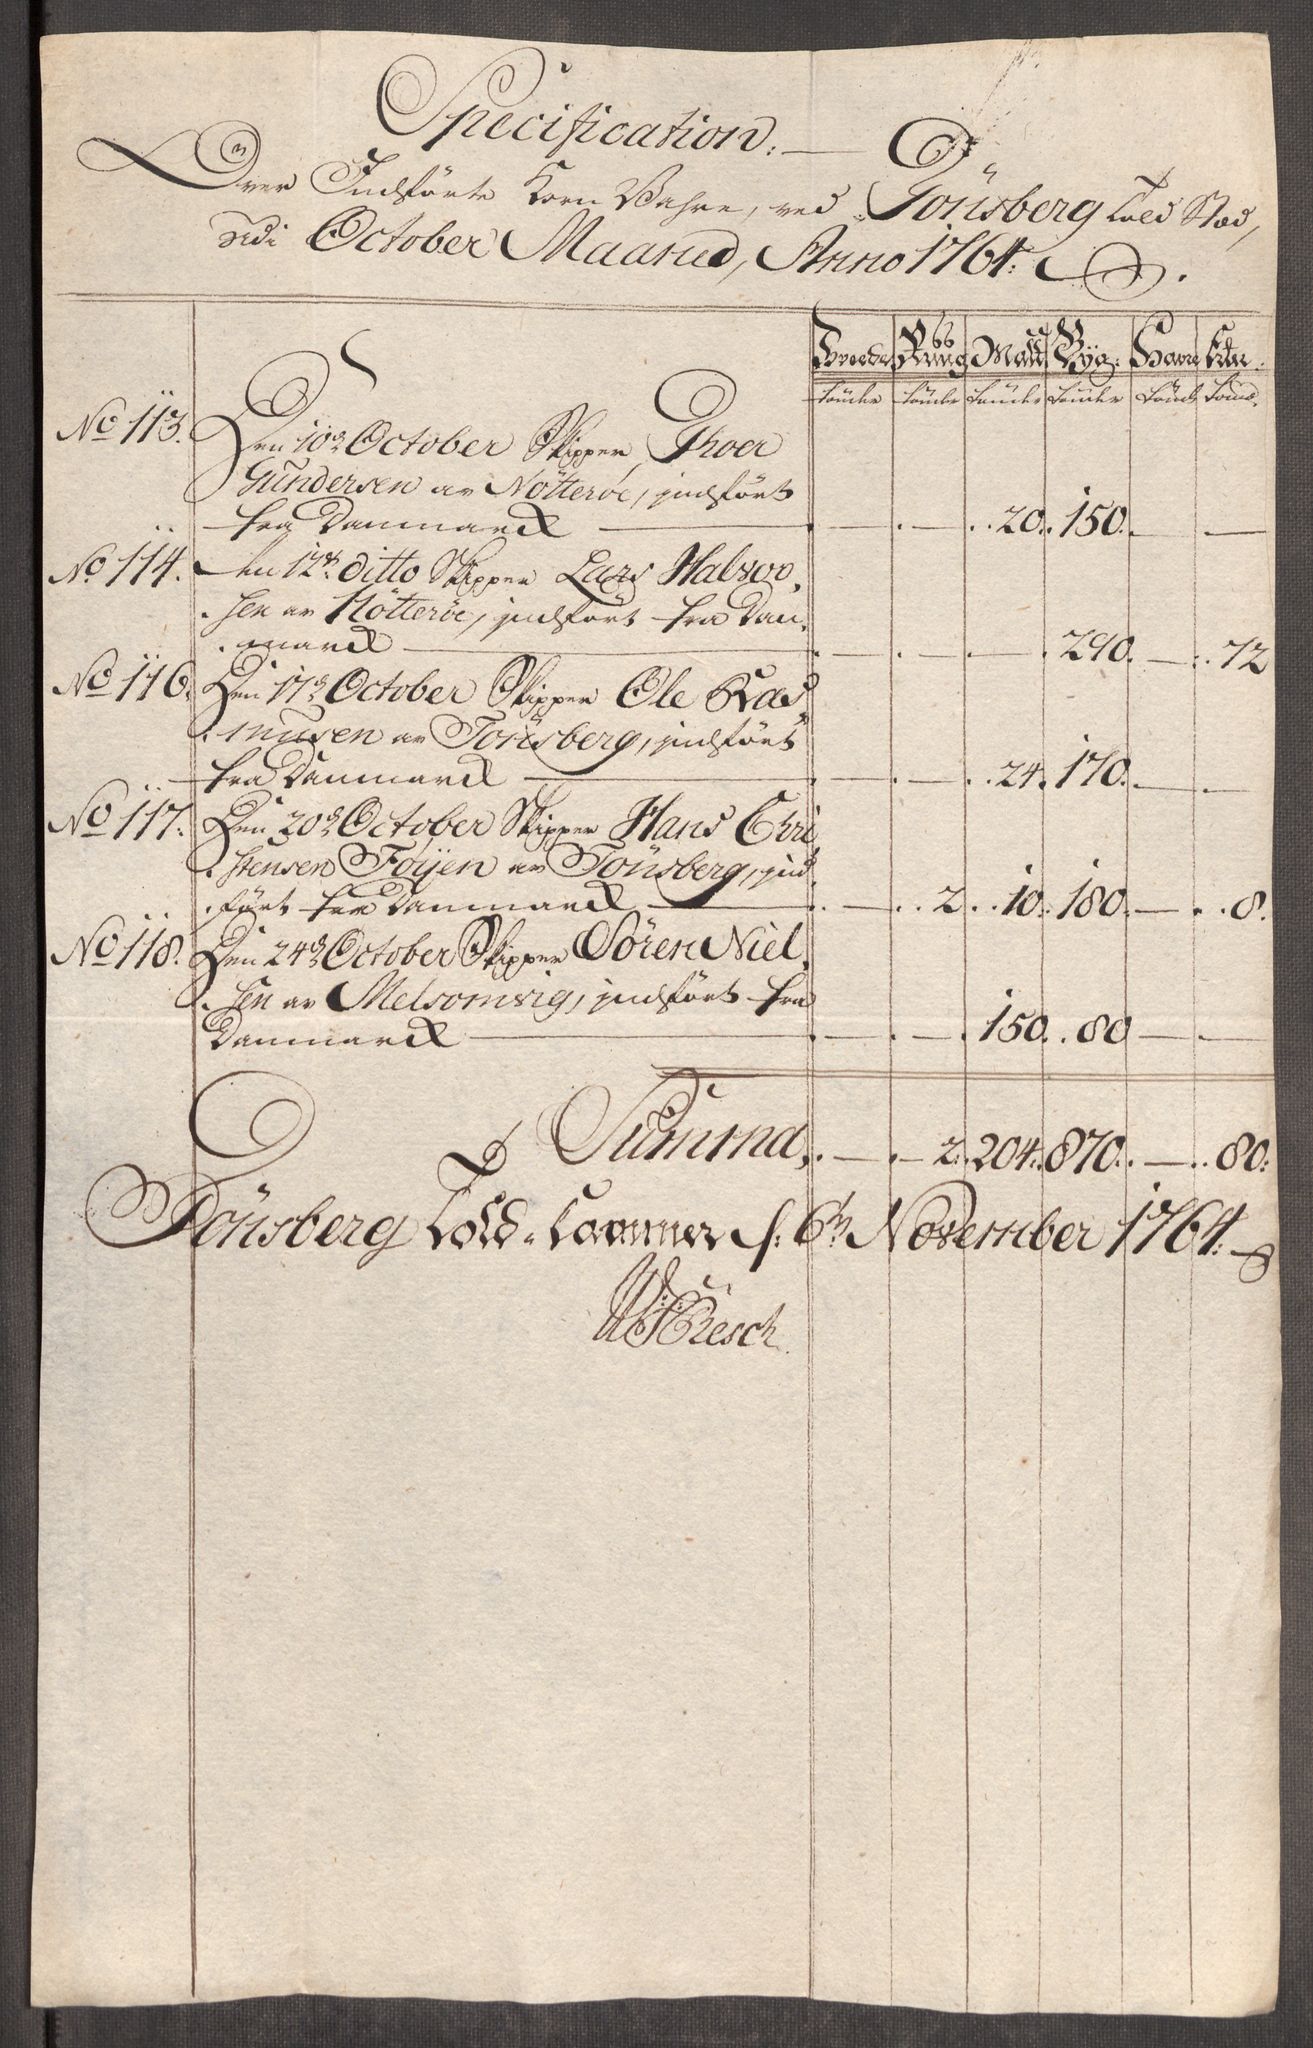 Specification.
Over Indførte Korn Wahre, ved Tönsberg Told Stæd,
udi October Maaned, Anno 1764.
Hvede Rug Malt Byg. Havre Erter.
Tönder Tönder Tönder Tönder Tönder Tönd.
No 113. Den 10de October Skipper Thoer
Gundersen av Nötteröe, indfört
fra Danmarck 20. 150.
No 114. den 12te ditto Skipper Lars Halvor,
sen av Nötteröe, indfört fra Dan,
marck 290. 72
No 116. Den 17de October Skipper Ole Ras,
musen av Tönsberg, indfört
fra Danmarck 24. 170.
No 117. Den 20de October Skipper Hans Chri
stensen Föyen av Tönsberg, ind,
fört fra Danmarck 2. 10. 180. 8.
No 118. Den 24de October Skipper Sören Niel,
sen av Melsomvig, indfört fra
Danmarck 150. 80
Summa, 2. 204. 870. 80.
Tönsberg Told-Kammer d: 6te November 1764.
Resch